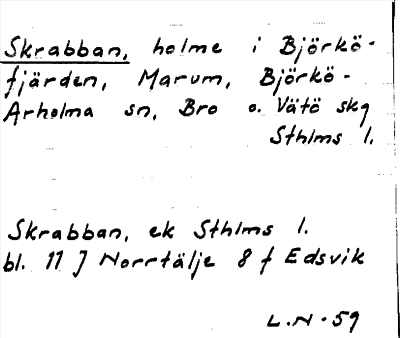 Skrabban, holme i Björkö-
fjärden, Marum, Björkö-
Arholma sn, Bro o. Vätö skg
Sthlms l.
Skrabban, ek Sthlms l.
bl. 11 J Norrtälje 8 f Edsvik
L.N-59